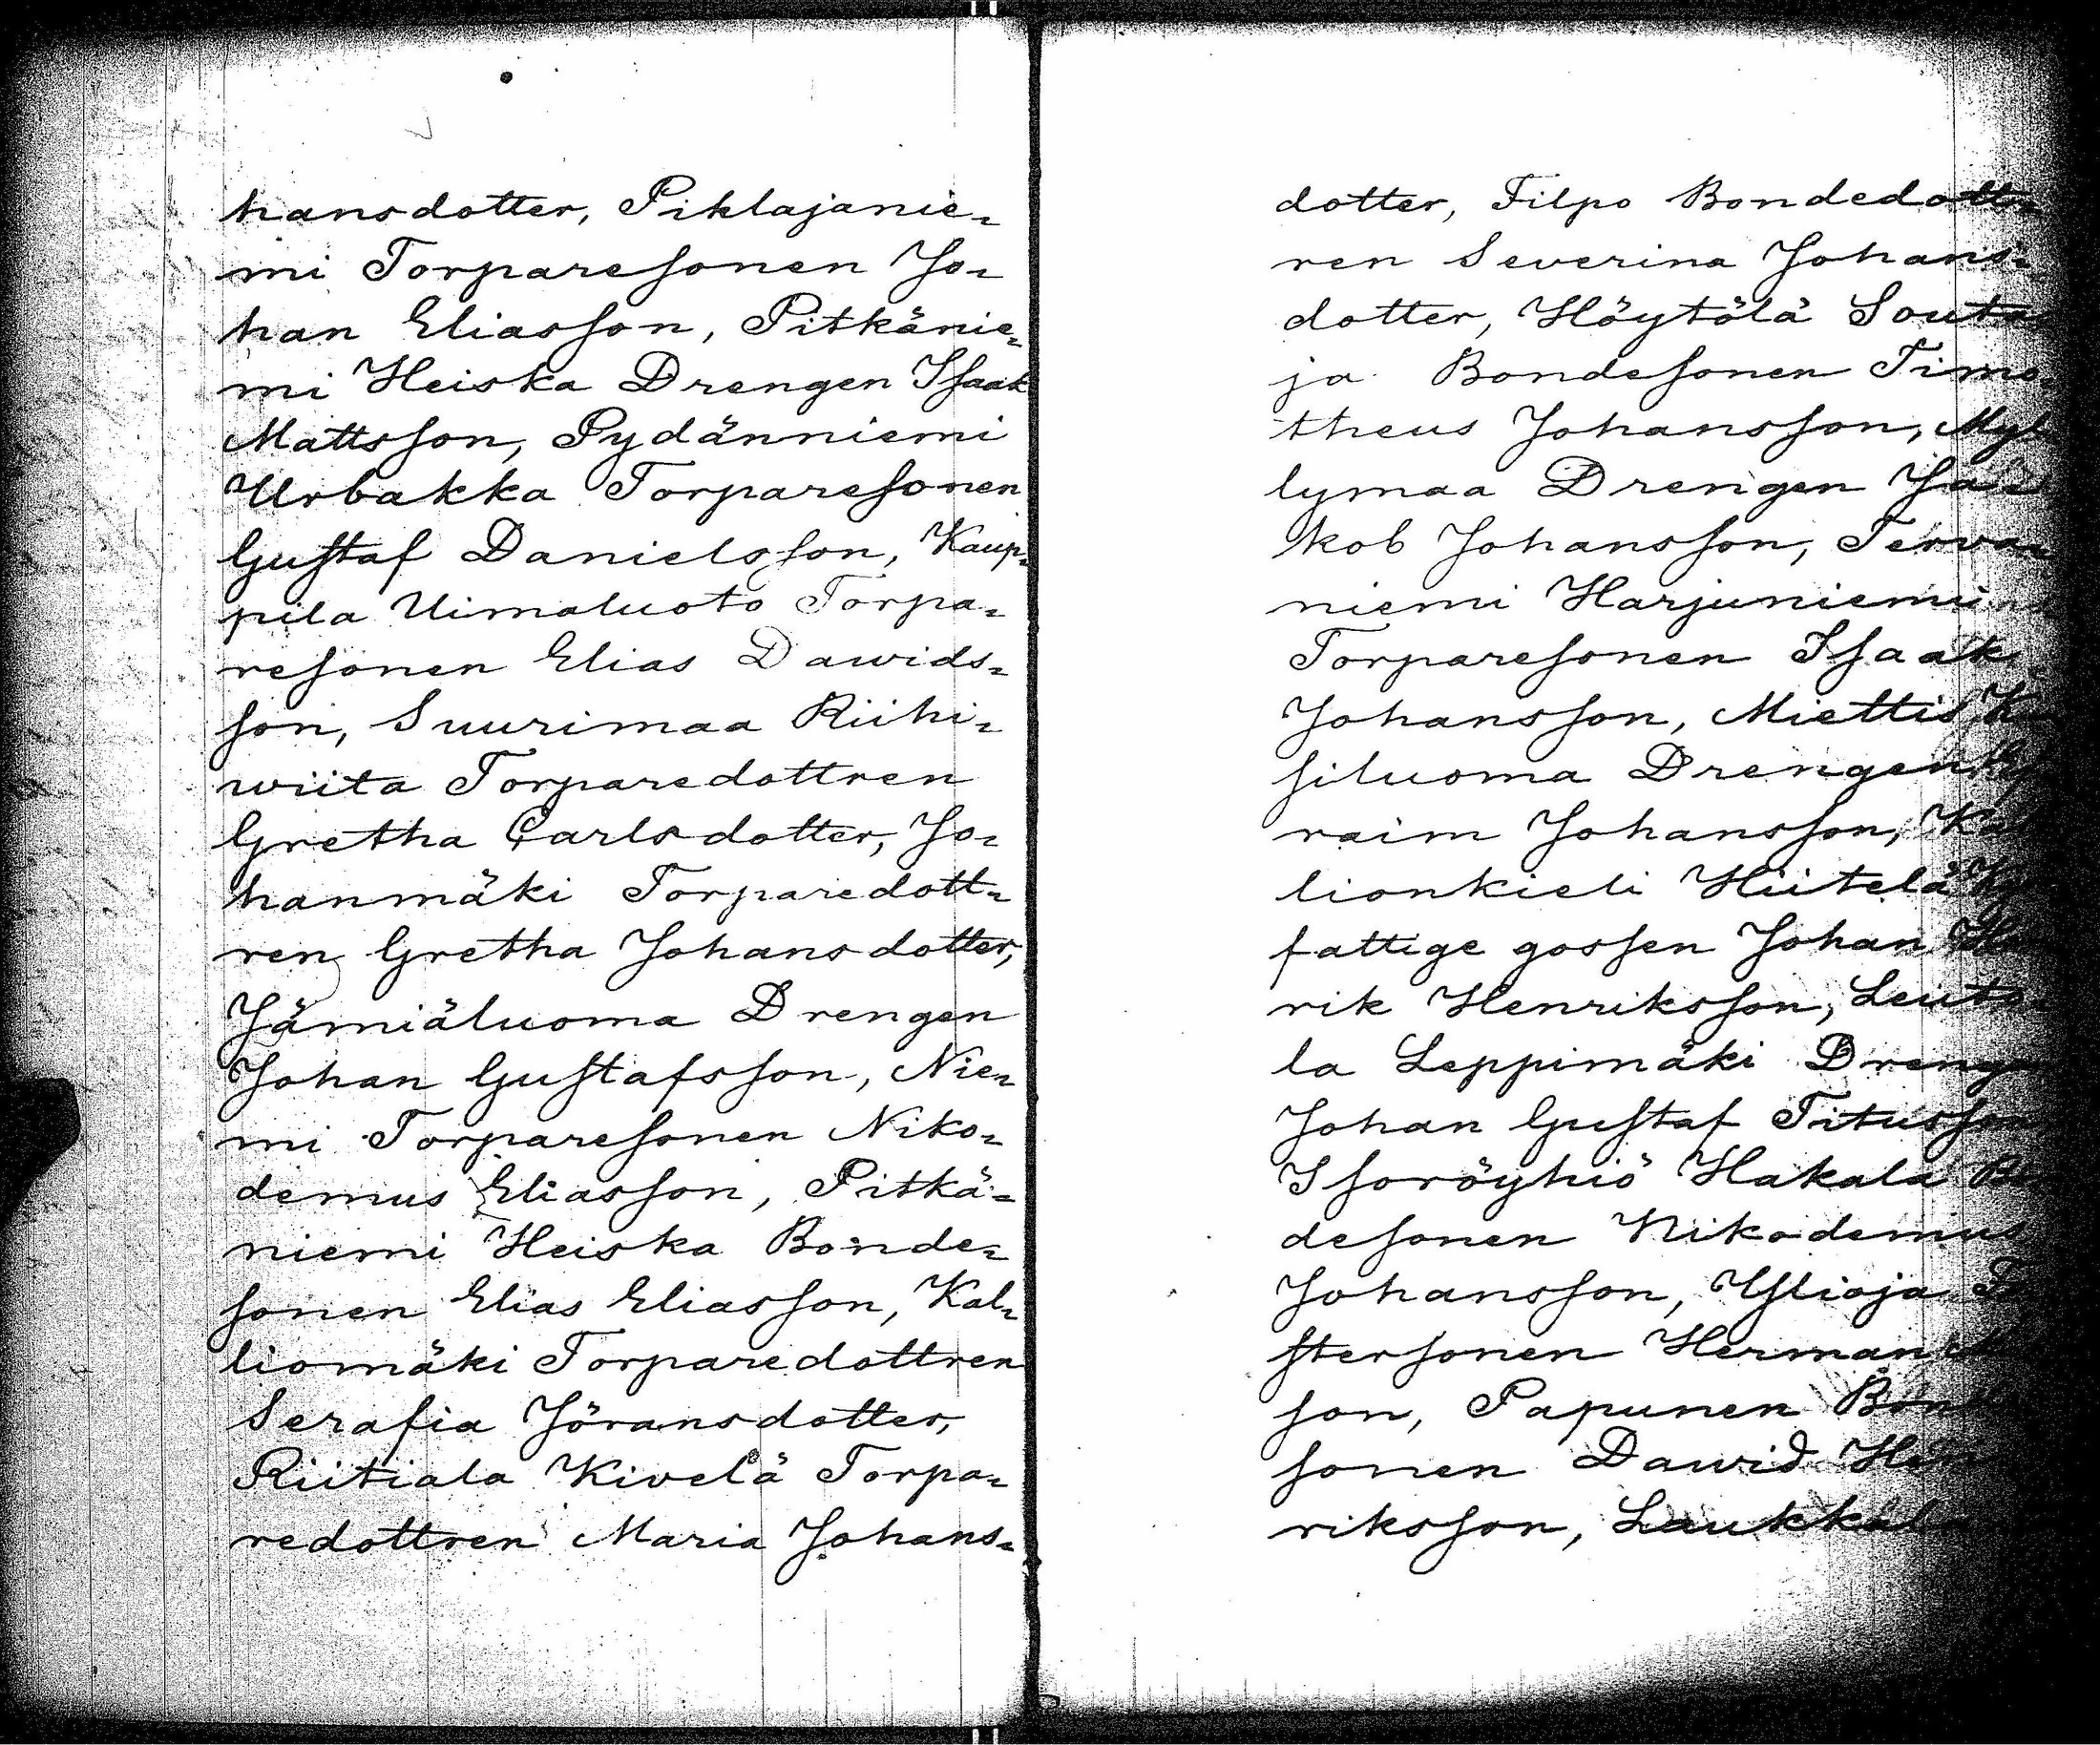 hansdotter, Piklajanie-
mi Torparesonen Jo-
han Eliasson, Pitkänie-
mi Heiska Drengen Isaak
Mattsson, Pydänniemi
Urbakka Torparesonen
Gustaf Danielsson, Kaup-
pila Uimaluoto Torpa-
resonen Elias Dawids-
son, Suurimaa Riihi-
wiita Torparedottren
Gretha Carlsdotter, Jo-
hanmäki Torparedott-
ren Gretha Johansdotter,
Jämiäluoma Drengen
Johan Gustafsson, Nie-
mi Torparesonen Niko-
demus Eliasson, Pitkä-
niemi Heiska Bonde-
sonen Elias Eliasson, Kal-
liomäki Torparedottren
Serafia Jöransdotter,
Riitiala Kivelä Torpa-
redottren Maria Johans-
dotter, Filpo Bondedott-
ren Severina Johans-
dotter, Höytölä Souta
ja Bondesonen Timo-
theus Johansson, Myl
lymaa Drengen Ja-
kob Johansson, Terva-
niemi Harjuniemi
Torparesonen Isaak
Johansson, Miettis
siluoma Drengen
raim Johansson, Kal
lionkieli Hiitelä
fattige gossen Johan
rik Henriksson, Leuto-
la Leppimäki Dreng
Johan Gustaf Titusson
Isoröyhiö Hakala
desonen Nikodemus
Johansson, Ylioja
stersonen Herman
son, Papunen Bon
sonen Dawid Hen
riksson, Laukkala